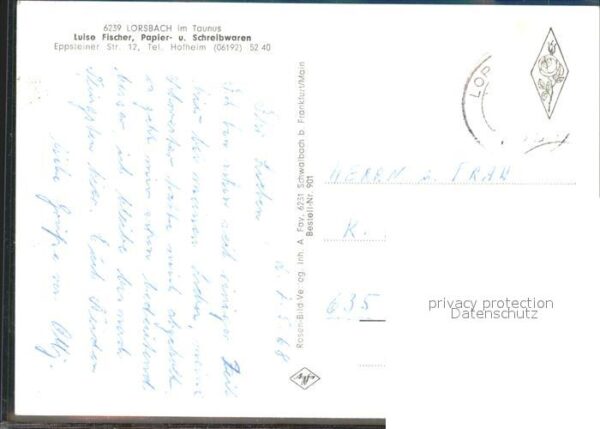 6239 LORSBACH im Taunus
Luise Fischer, Papier- u. Schreibwaren
Eppsteiner Str. 12, Tel. Hofheim (06192) 52 40
d. 7.5.68
Ihr Lieben!
Ich bin schon seit einiger Zeit
hier bei meinen lieben, meine
Schwester hatte mich abgeholt.
es geht mir schon bedeutend
besser ich bleibe bis nach
Pfingsten hier.
liebe Grüße von
Rosen-Bild-Verlag, Inh. A. Fay, 6231 Schwalbach b. Frankfurt/Main
Bestell-Nr. 901
LOR
HERRN u. FRAU
K.
635
privacy protection
Datenschutz